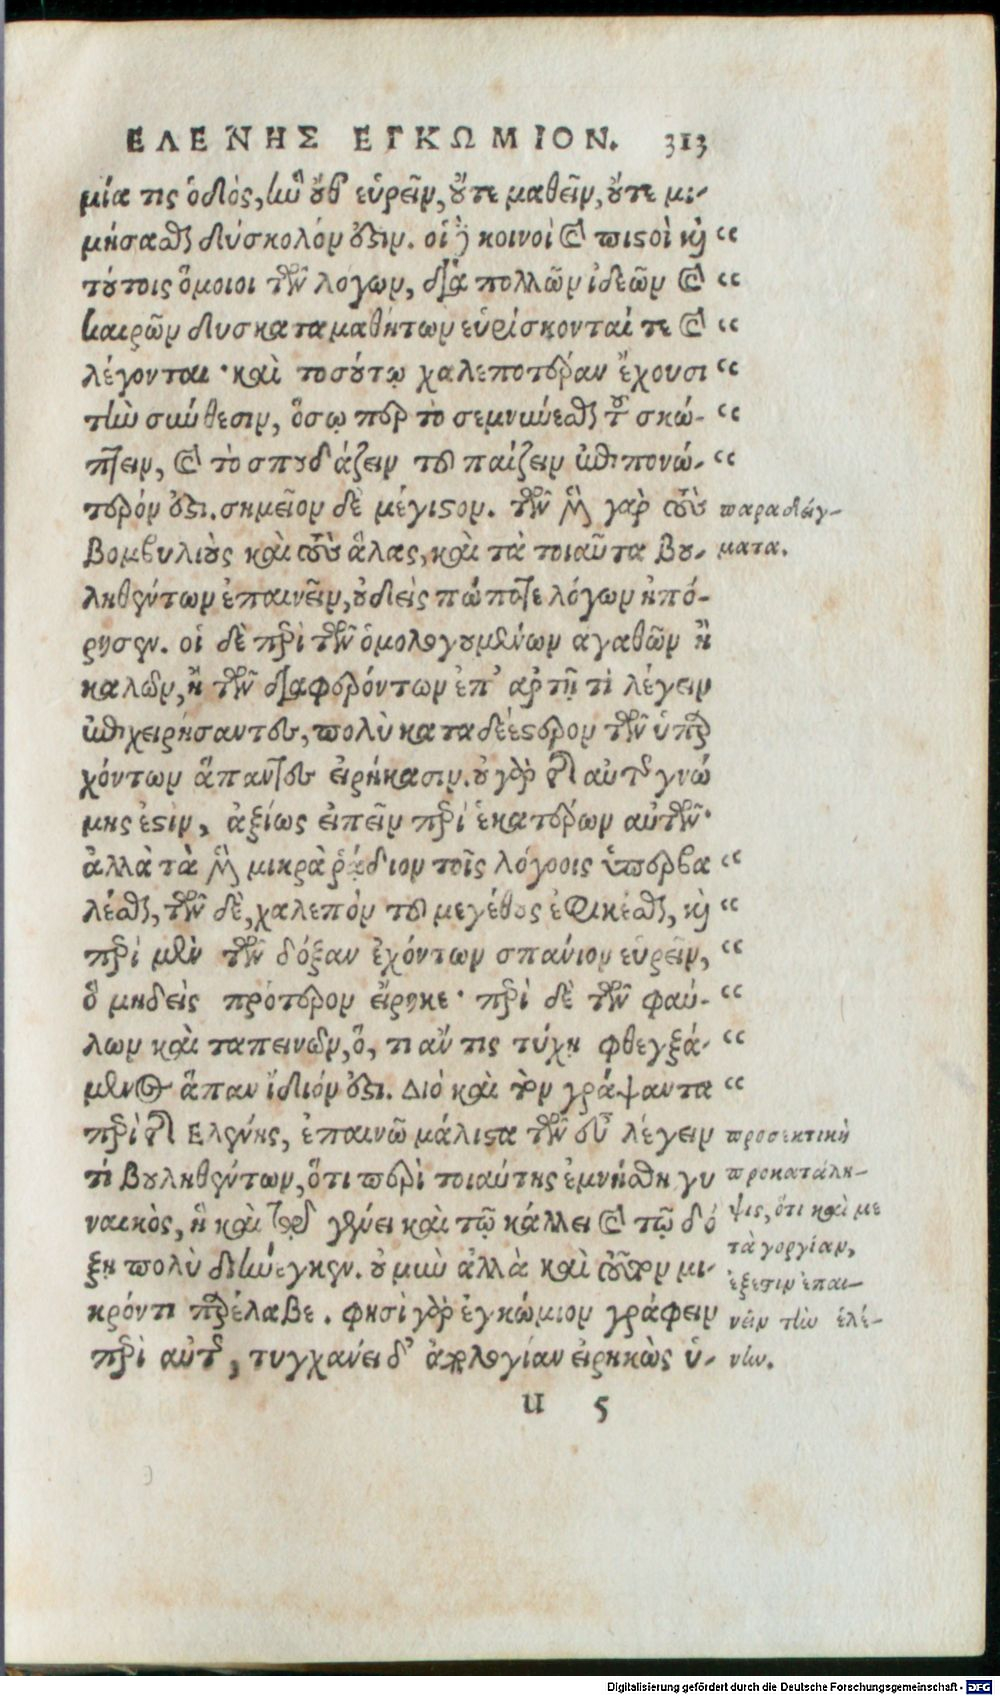 ΕΛΕΝΗΣ ΕΓΚΩΜΙΟΝ. 313
μία τις ὁδὸς, ἣν οὔθ' εὑρεῖν, οὔτε μαθεῖν, οὔτε μι-
μήσασθαι δύσκολόν ἐστιν. οἱ δὲ κοινοὶ καὶ πιστοὶ καὶ "
τούτοις ὅμοιοι τῶν λόγων, διὰ πολλῶν ἰδεῶν καὶ "
καιρῶν δυσκαταμαθήτων εὑρίσκονταί τε καὶ "
λέγονται · καὶ τοσούτῳ χαλεπωτέραν ἔχουσι "
τὴν σύνθεσιν, ὅσῳ περ τὸ σεμνύνεσθαι τοῦ σκώ- "
πτειν, καὶ τὸ σπουδάζειν τοῦ παίζειν ἐπιπονώ- "
τερόν ἐστι. σημεῖον δὲ μέγιστον. τῶν μὲν γὰρ τοὺς
βομβυλιοὺς καὶ τοὺς ἅλας, καὶ τὰ τοιαῦτα βου-
ληθέντων ἐπαινεῖν, οὐδεὶς πώποτε λόγων ἠπό-
ρησεν. οἱ δὲ περὶ τῶν ὁμολογουμένων ἀγαθῶν ἢ
καλῶν, ἢ τῶν διαφερόντων ἐπ' ἀρετῇ τὶ λέγειν
ἐπιχειρήσαντες, πολὺ καταδεέστερον τῶν ὑπαρ
χόντων ἅπαντες εἰρήκασιν. οὐ γὰρ τῆς αὐτῆς γνώ
μης ἐστὶν, ἀξίως εἰπεῖν περὶ ἑκατέρων αὐτῶν·
ἀλλὰ τὰ μὲν μικρὰ ῥᾴδιον τοῖς λόγοις ὑπερβα "
λέσθαι, τῶν δὲ, χαλεπὸν τοῦ μεγέθους ἐφικέσθαι, καὶ "
περὶ μὲν τῶν δόξαν ἐχόντων σπάνιον εὑρεῖν, "
ὃ μηδεὶς πρότερον εἴρηκε · περὶ δὲ τῶν φαύ- "
λων καὶ ταπεινῶν, ὅ, τι ἄν τις τύχῃ φθεγξά- "
μενος ἅπαν ἴδιόν ἐστι. Διὸ καὶ τὸν γράψαντα "
περὶ τῆς Ἑλένης, ἐπαινῶ μάλιστα τῶν εὖ λέγειν
τὶ βουληθέντων, ὅτι περὶ τοιαύτης ἐμνήσθη γυ
ναικὸς, ἣ καὶ τῷ γένει καὶ τῷ κάλλει καὶ τῇ δό
ξῃ πολὺ διήνεγκεν. οὐ μὴν ἀλλὰ καὶ τοῦτον μι-
κρόν τι παρέλαβε. φησὶ γὰρ ἐγκώμιον γράφειν
περὶ αὐτῆς, τυγχάνει δ' ἀπολογίαν εἰρηκὼς ὑ-
u 5
παραδείγ-
ματα.
προσεκτικὴ
προκατάλη-
ψις, ὅτι καὶ με
τὰ γοργίαν,
ἔξεστιν ἐπαι-
νεῖν τὴν ἑλέ-
νην.
Digitalisierung gefördert durch die Deutsche Forschungsgemeinschaft - DFG